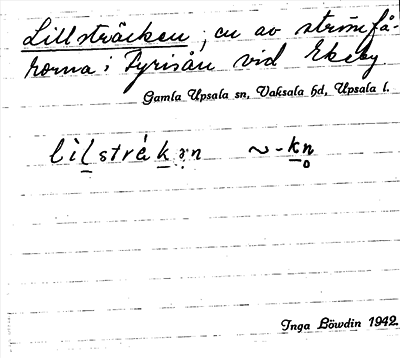 Lillsträcken, en av strömfå-
rorna i Fyrisån vid Ekeby
Gamla Upsala sn, Vaksala hd, Upsala l.
lìl̠strák̠ən ~ -k̠n̥
Inga Löwdin 1942